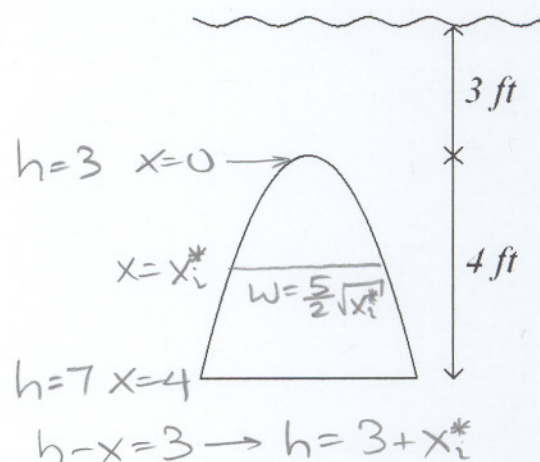 3 ft
h=3 x=0
4 ft
x=x_i^*
w=5/2 √x_i^*
h=7 x=4
h-x=3 → h=3+x_i^*